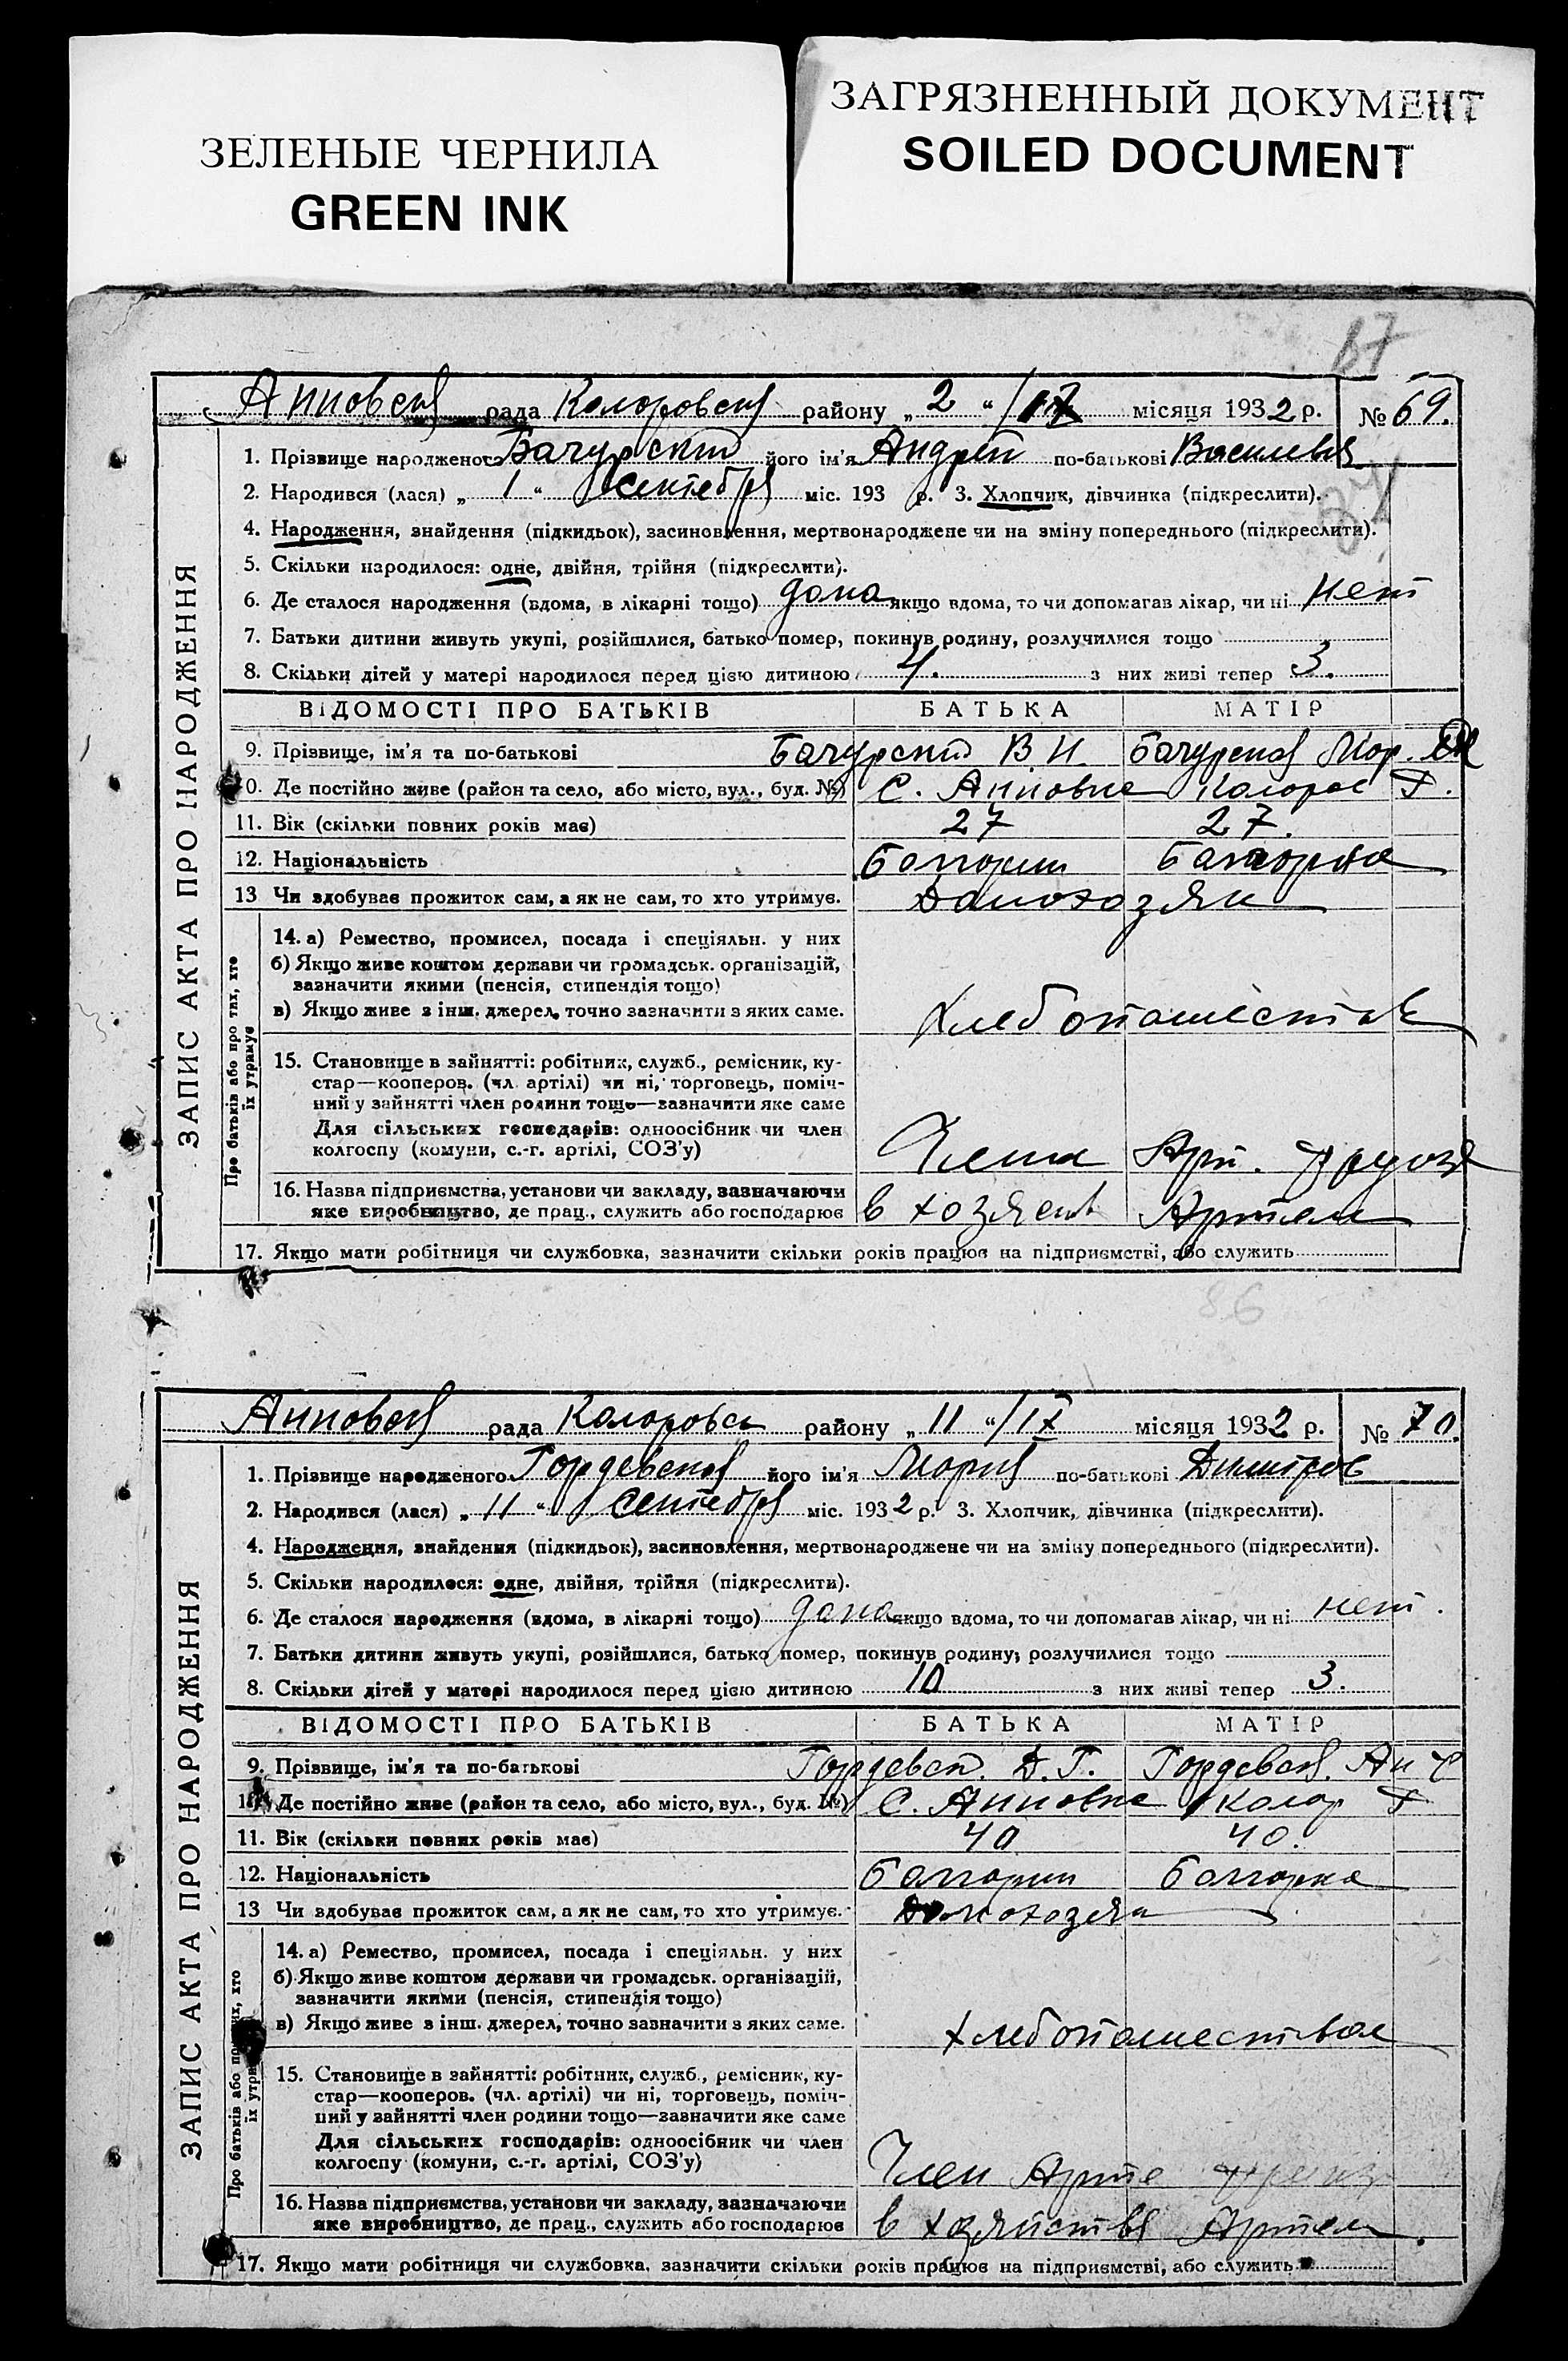 ЗЕЛЕНЫЕ ЧЕРНИЛА
GREEN INK
ЗАГРЯЗНЕННЫЙ ДОКУМЕНТ
SOILED DOCUMENT
67
рада району „ 2 “ / місяця 1932 р. № 69.
ЗАПИС АКТА ПРО НАРОДЖЕННЯ
1. Прізвище народженого Бачурский його ім'я Андрей по-батькові
2. Народився (лася) „ 1 “ Сентебря міс. 193 р. 3. Хлопчик, дівчинка (підкреслити).
4. Народження, знайдення (підкидьок), засиновлення, мертвонароджене чи на зміну попереднього (підкреслити).
5. Скільки народилося: одне, двійня, трійня (підкреслити).
6. Де сталося народження (вдома, в лікарні тощо) дома якщо вдома, то чи допомагав лікар, чи ні нет
7. Батьки дитини живуть укупі, розійшлися, батько помер, покинув родину, розлучилися тощо
8. Скільки дітей у матері народилося перед цією дитиною 4. з них живі тепер 3.
ВІДОМОСТІ ПРО БАТЬКІВ БАТЬКА МАТІР
9. Прізвище, ім'я та по-батькові Бачурский В. И.
10. Де постійно живе (район та село, або місто, вул., буд. №) С. Анновка
11. Вік (скільки повних років має) 27 27.
12. Національність Болгорин Болгорка
13 Чи здобуває прожиток сам, а як не сам, то хто утримує. Домохозяин
Про батьків або про тих, хто їх утримує
14. а) Ремество, промисел, посада і спеціяльн. у них
б) Якщо живе коштом держави чи громадськ. організацій,
зазначити якими (пенсія, стипендія тощо)
в) Якщо живе з інш. джерел, точно зазначити з яких саме.
15. Становище в зайнятті: робітник, служб., ремісник, ку-
стар—кооперов. (чл. артілі) чи ні, торговець, поміч-
ний у зайнятті член родини тощо—зазначити яке саме
Для сільських господарів: одноосібник чи член
колгоспу (комуни, с.-г. артілі, СОЗ'у)
16. Назва підприємства, установи чи закладу, зазначаючи
яке виробництво, де прац., служить або господарює в Артели
17. Якщо мати робітниця чи службовка, зазначити скільки років працює на підприємстві, або служить
86
рада району „ 11 “ / IX місяця 1932 р. № 70.
ЗАПИС АКТА ПРО НАРОДЖЕННЯ
1. Прізвище народженого його ім'я Мория по-батькові Димитров
2. Народився (лася) „ 11 “ Сентебря міс. 1932 р. 3. Хлопчик, дівчинка (підкреслити).
4. Народження, знайдення (підкидьок), засиновлення, мертвонароджене чи на зміну попереднього (підкреслити).
5. Скільки народилося: одне, двійня, трійня (підкреслити).
6. Де сталося народження (вдома, в лікарні тощо) дома якщо вдома, то чи допомагав лікар, чи ні нет.
7. Батьки дитини живуть укупі, розійшлися, батько помер, покинув родину, розлучилися тощо
8. Скільки дітей у матері народилося перед цією дитиною 10 з них живі тепер 3.
ВІДОМОСТІ ПРО БАТЬКІВ БАТЬКА МАТІР
9. Прізвище, ім'я та по-батькові Д. Г.
10. Де постійно живе (район та село, або місто, вул., буд. №) С. Анновка
11. Вік (скільки повних років має) 40 40.
12. Національність Болгорин Болгорка
13 Чи здобуває прожиток сам, а як не сам, то хто утримує. Домохозяин
Про батьків або про тих, хто їх утримує
14. а) Ремество, промисел, посада і спеціяльн. у них
б) Якщо живе коштом держави чи громадськ. організацій,
зазначити якими (пенсія, стипендія тощо)
в) Якщо живе з інш. джерел, точно зазначити з яких саме. хлебопашество
15. Становище в зайнятті: робітник, служб., ремісник, ку-
стар—кооперов. (чл. артілі) чи ні, торговець, поміч-
ний у зайнятті член родини тощо—зазначити яке саме
Для сільських господарів: одноосібник чи член
колгоспу (комуни, с.-г. артілі, СОЗ'у) Член Арте
16. Назва підприємства, установи чи закладу, зазначаючи
яке виробництво, де прац., служить або господарює в хозяйстве Артели.
17. Якщо мати робітниця чи службовка, зазначити скільки років працює на підприємстві, або служить